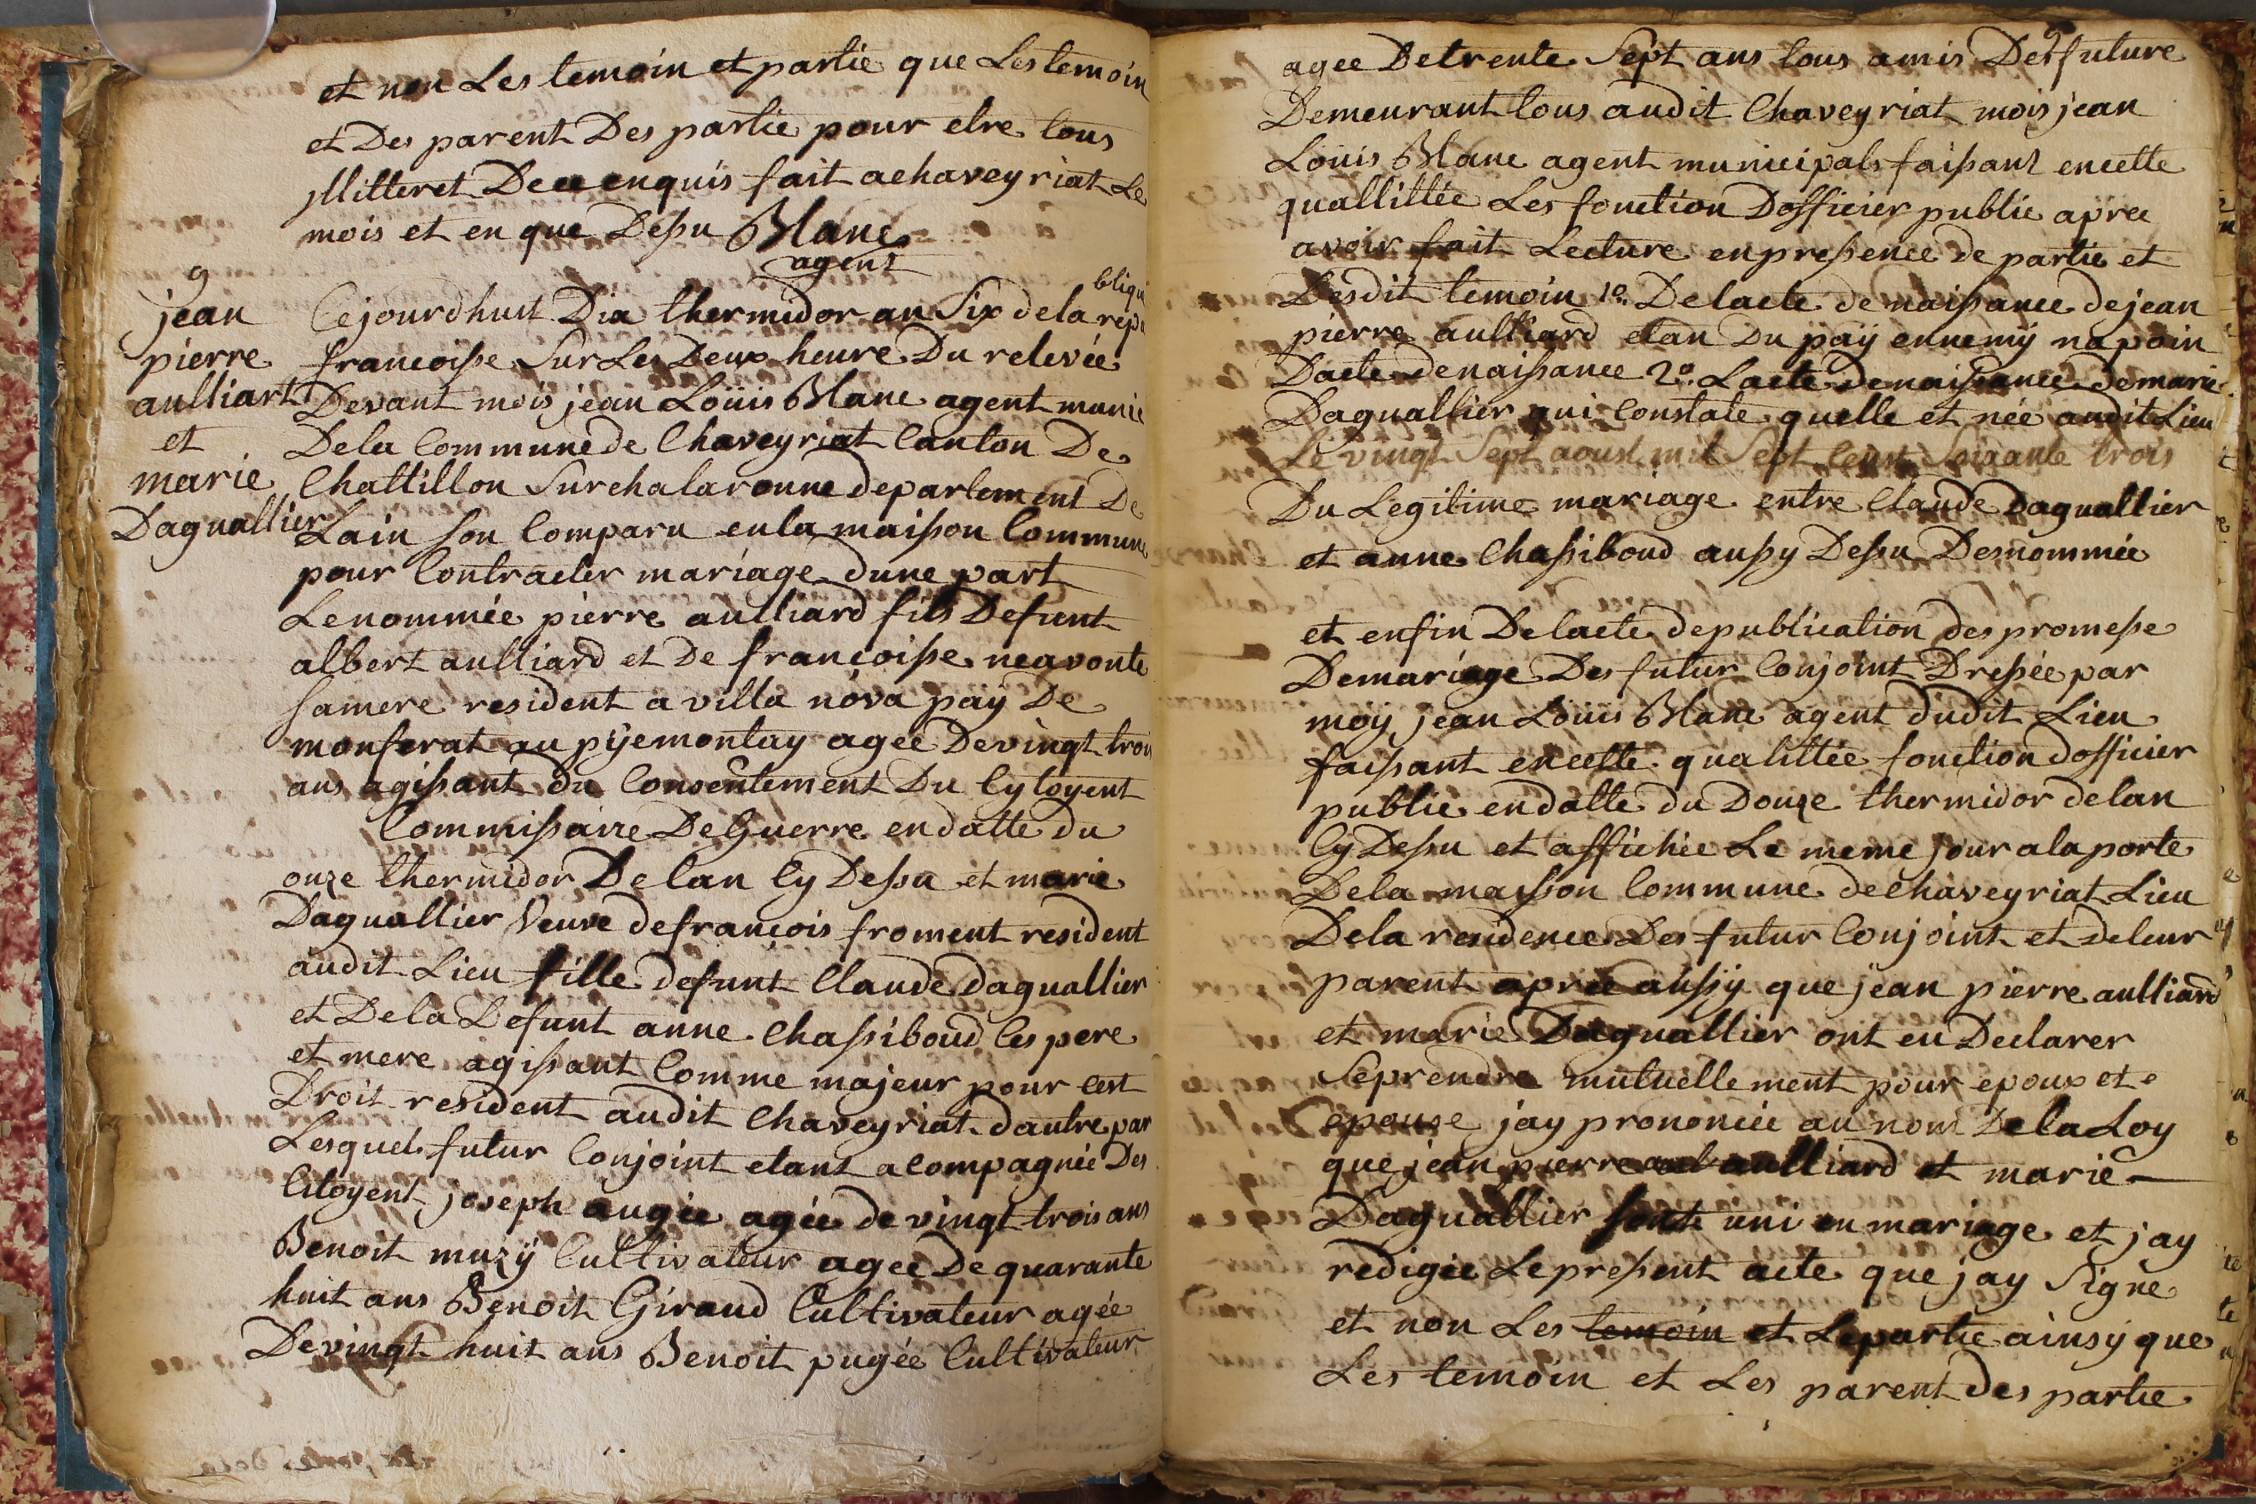 et non Les temoin et partie que Les temoin
et Des parent Des partie pour etre tous
jllitteret De ce enquis fait a chaveyriat Le
mois et en que Dessu Blanc
agent
9
jean
pierre
aulliart
et
marie
Daguallier
Cejourdhuit Dix thermidor an Six de la repu
bliqu
francoisse Sur Les Deux heure Du relevée
Devant mois jean Loüis Blanc agent munic
De la Commune de Chaveyriat Canton De
Chattillon Sur chalaronne departement De
Lain son Comparu en la maison Commune
pour Contracter mariage dune part
Le nommée pierre aulliard fils Defunt
albert aulliard et De francoisse neavonte
samere resident a villa nóva paÿ De
monferat au pÿemontay agee De vingt trois
ans agissant du Consentement Du Cytoyent
Commissaire De Guerre en datte du
onze thermidor De lan Cy Dessu et marie
Daguallier Veuve de françois froment resident
audit Lieu fille defunt Claude Daguallier
et De la Defunt anne Chassiboud Ces pere
et mere agissant Comme majeur pour cest
Droit resident audit Chaveyriat dautre par
Lesquel futur Conjoint etant acompagnée Des
Citoyent joseph augée agée de vingt trois ans
Benoit muzÿ Cultivateur agee De quarante
huit ans Benoit Giraud Cultivateur agée
De vingt huit ans Benoit pugée Cultivateur
agee De trente Sept ans tous amis Des future
Demeurant tous audit Chaveyriat mois jean
Loüis Blanc agent municipals faissant en cette
quallittée Les fonction Dofficier public apree
avoir fait Lecture en pressence de partie et
Desdit temoin 1º De lacte de naissance de jean
pierre aulliard etan Du paÿ ennemÿ na poin
Dacte de naissance 2º Lacte de naissance de marie
Daguallier qui Constate quelle et née audit Lieu
Le vingt Sept aoust mil Sept Cent Soixante trois
Du Legitime mariage entre Claude Daguallier
et anne Chassiboud aussy Dessu Desnommée
et enfin De lacte de publication des promesse
De mariage Des futur Conjoint Dressée par
moÿ jean Loüis Blanc agent dudit Lieu
faissant en cette qualittée fonction dofficier
public en datte du Douze thermidor de lan
Cy Dessu et affichée Le meme jour a la porte
De la maisson Commune de chaveyriat Lieu
De la residence Des futur Conjoint et de leur
parent apree aussÿ que jean pierre aulliard
et marie Daguallier ont eu Declarer
Se prendre mutuellement pour epoux et
epouse jay prononcée au nom De la Loy
que jean pierre aulliard et marie
Daguallier sont uni en mariage et jay
redigée Le pressent acte que jay Signe
et non Les temoin et Le partie ainsÿ que
Les temoin et Les parent des partie